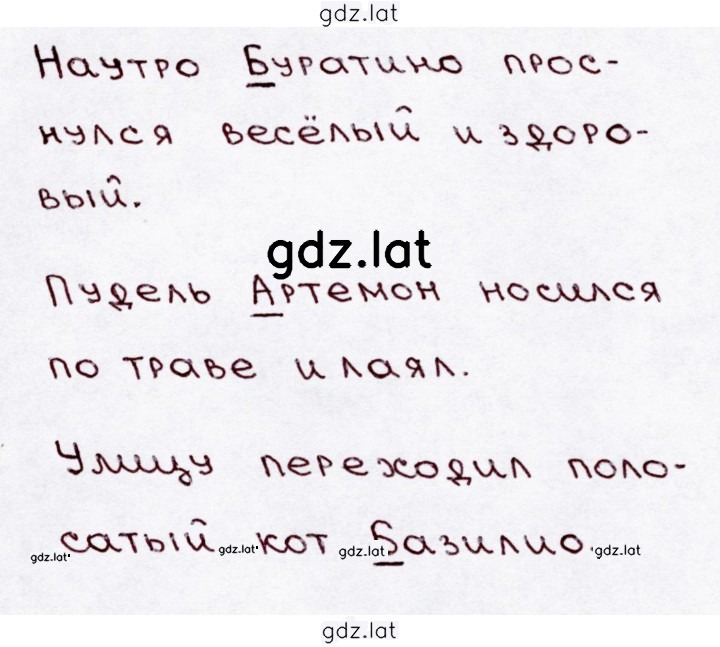 gdz.lat
Наутро Буратино прос-
нулся весёлый и здоро-
вый.
gdz.lat
Пудель Артемон носился
по траве и лаял.
Улицу переходил поло-
сатый кот Базилио.
gdz.lat gdz.lat gdz.lat gdz.lat
gdz.lat